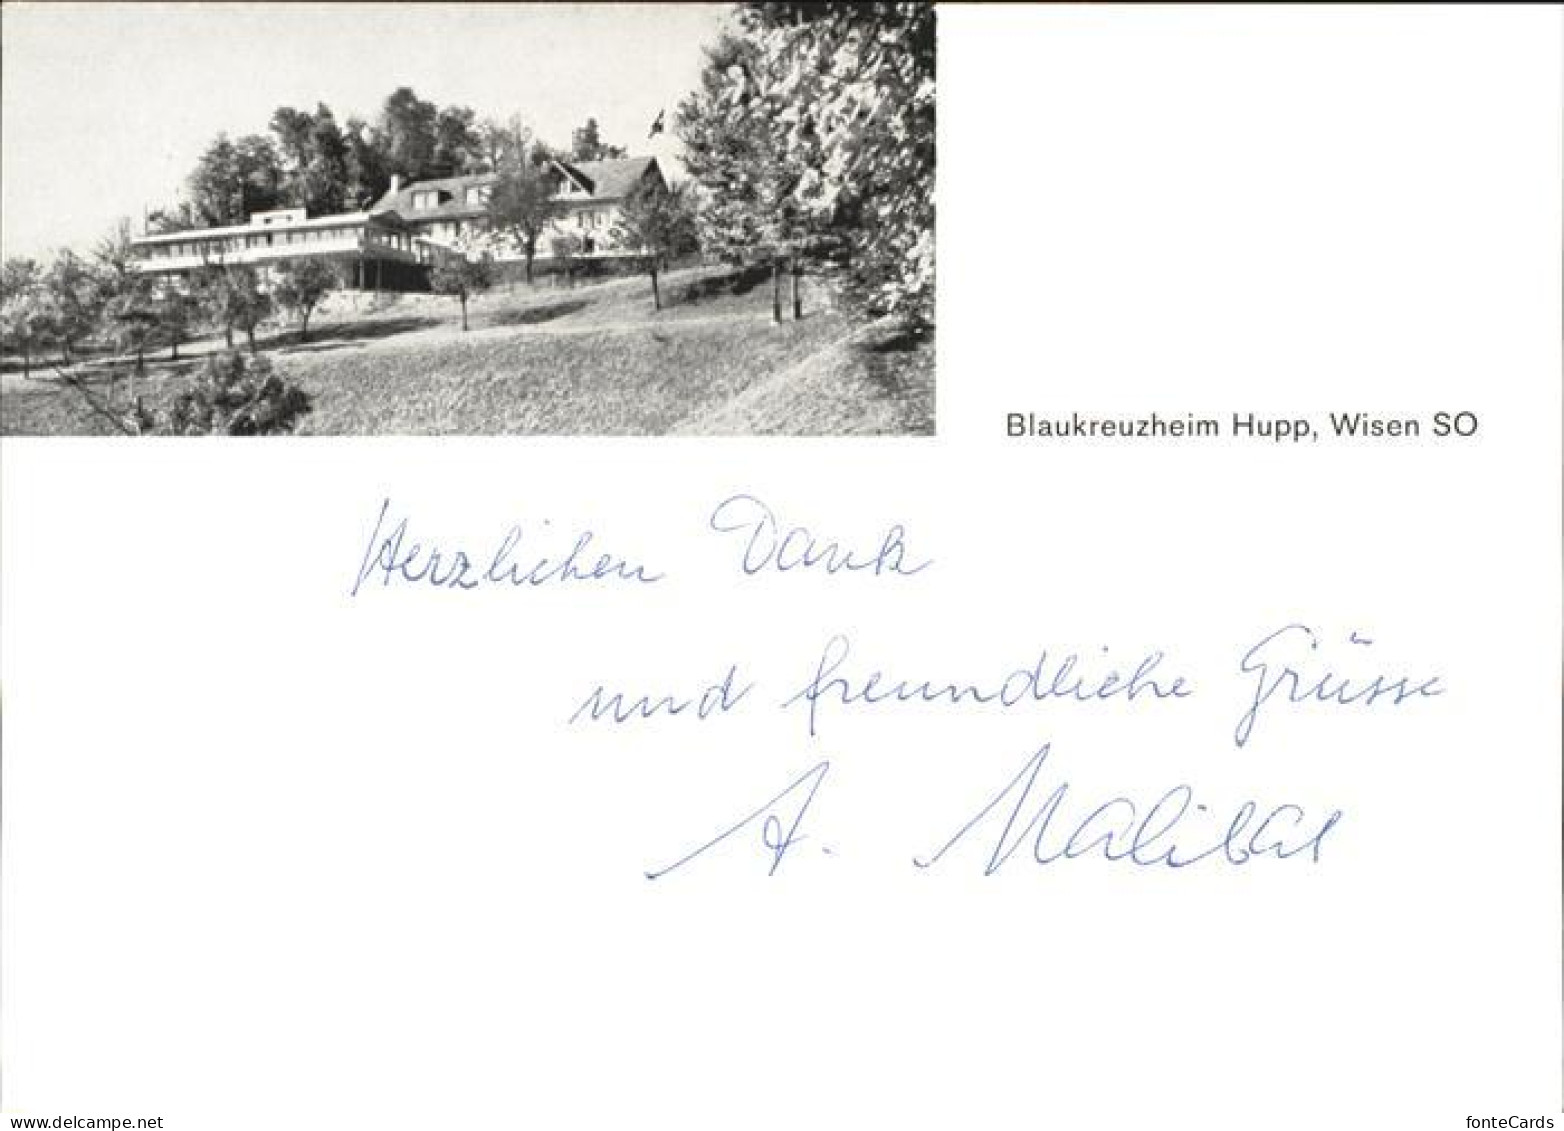 Blaukreuzheim Hupp, Wisen SO
Herzlichen Dank
und freundliche Grüsse
A.
delcampe.net
fonteCards